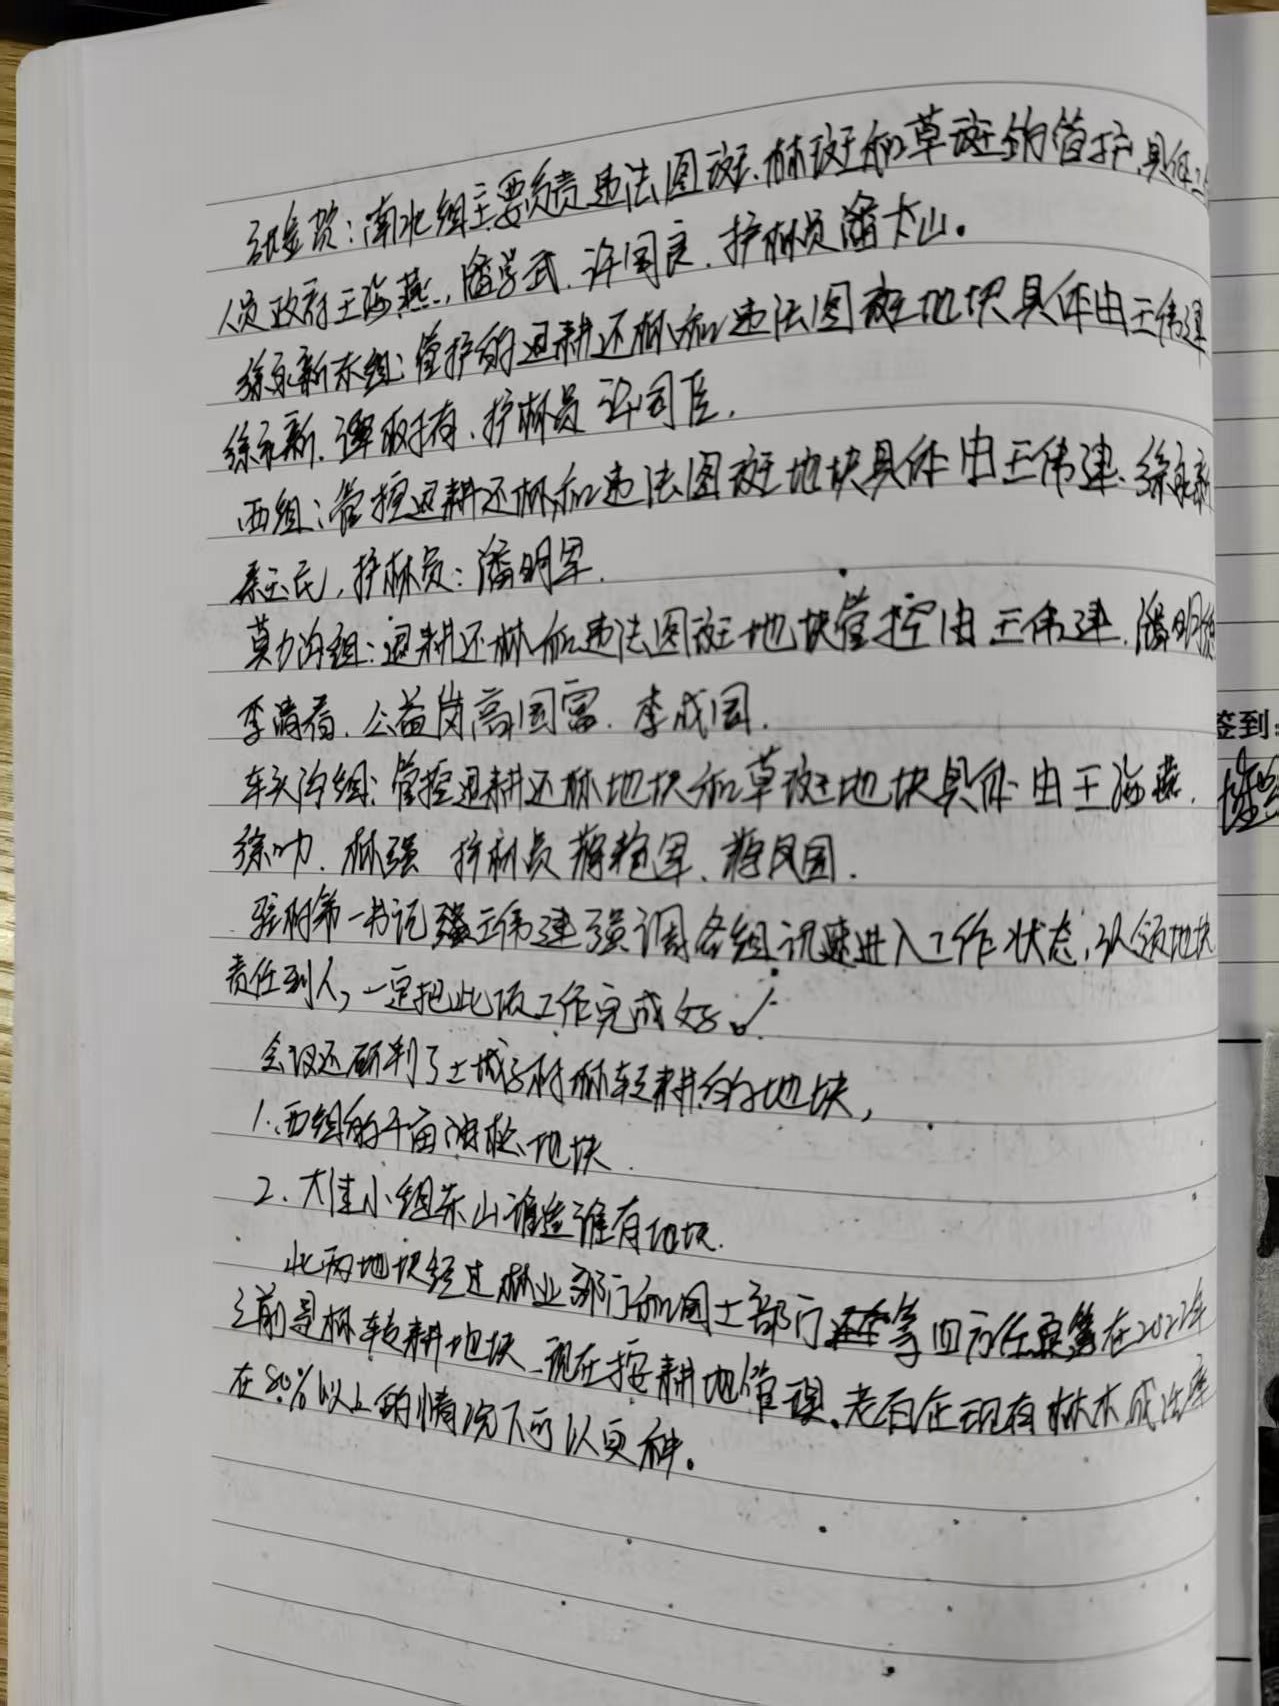 南北组主要负责违法图斑、林斑和草斑的管护,具体
人员政府王海燕、潘学武、许国良、护林员潘大山。
徐永新东组:管护的退耕还林和违法图斑地块具体由王伟建
徐永新、谭取有、护林员 许国臣,
西组:管控退耕还林和违法图斑地块具体由王伟建、徐永新
秦玉民,护林员:潘明军.
莫力沟组:退耕还林和违法图斑地块管控由王伟建、潘明
李 公益岗高国富、李成国.
车头沟组:管控退耕还林地块和草斑地块具体由王海燕、
徐力、林强 护林员蒋艳军、蒋凤国.
驻村第一书记王伟建强调各组迅速进入工作状态,认领地块
责任到人,一定把此项工作完成好。
会议还研判了土城子村林转耕的地块,
1.西组的千亩油松地块.
2.大佳小组东山谁造谁有地块.
此两地块经过林业部门和国土部门等四方在2022年
之前是林转耕地块、现在按耕地管理、老百在现有林木成活率
在80%以上的情况下可以更种。
签到: